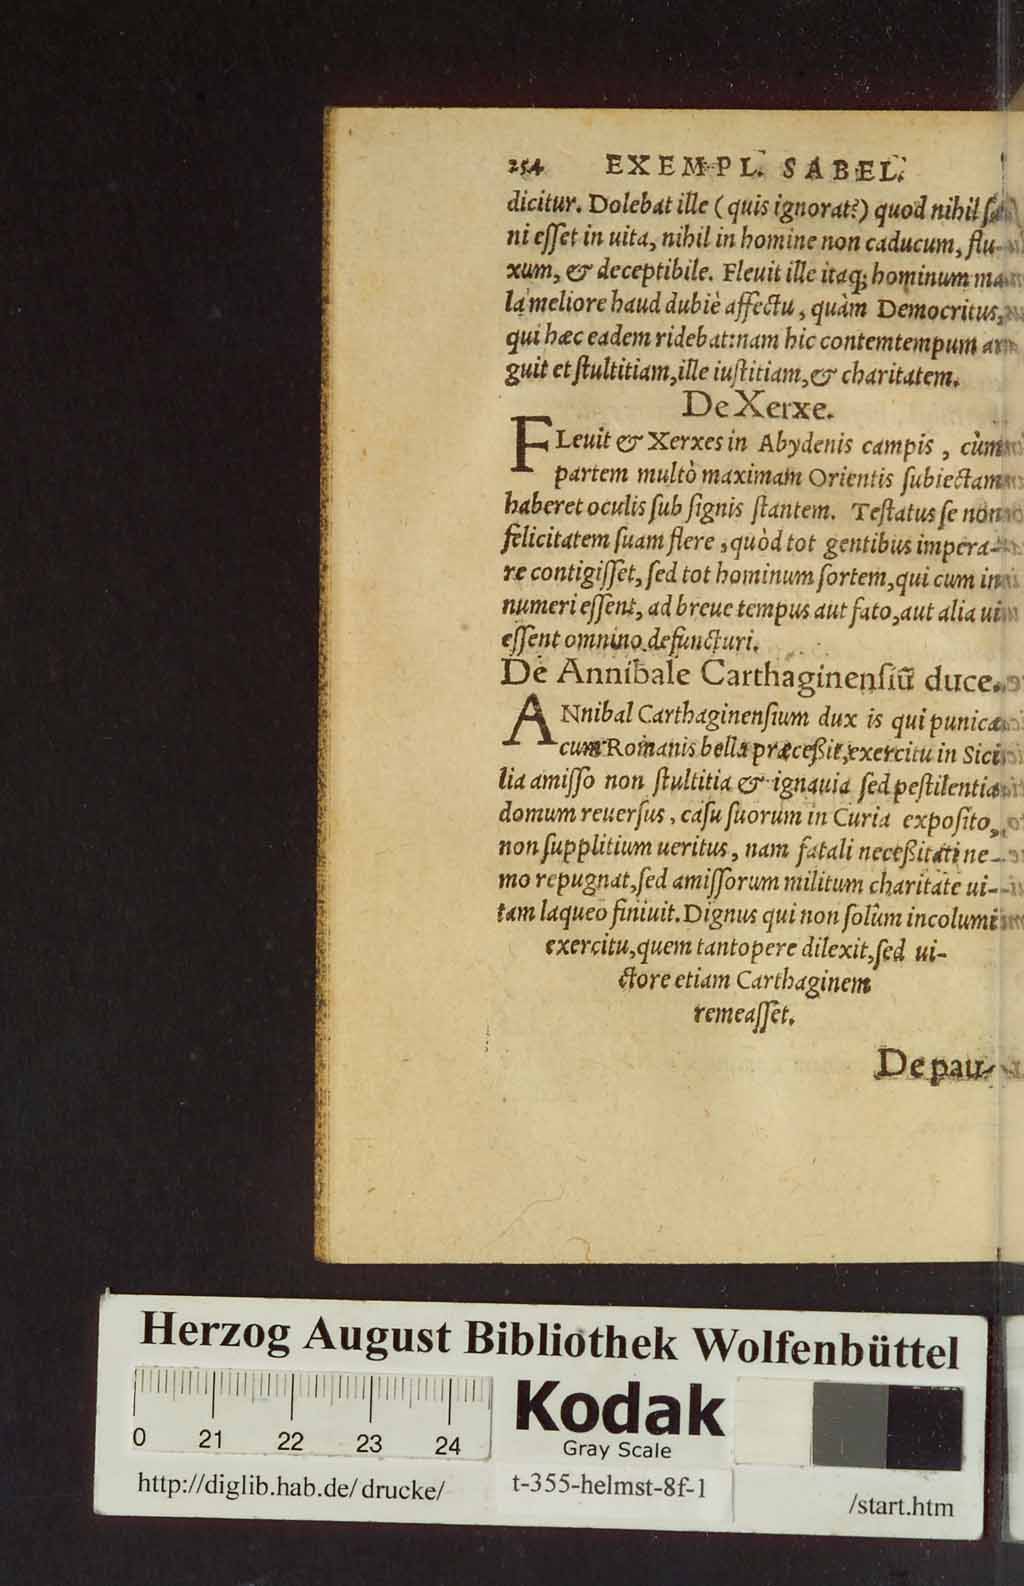 254 EXEMPL. SABEL.
dicitur. Dolebat ille (quis ignorat?) quod nihil sa-
ni esset in uita, nihil in homine non caducum, flu-
xum, & deceptibile. Fleuit ille itaq; hominum ma-
la meliore haud dubiè affectu, quàm Democritus,
qui hæc eadem ridebat: nam hic contemtempum ar-
guit et stultitiam, ille iustitiam, & charitatem.
De Xerxe.
FLeuit & Xerxes in Abydenis campis, cùm
partem multò maximam Orientis subiectam
haberet oculis sub signis stantem. Testatus se non
felicitatem suam flere, quòd tot gentibus impera-
re contigisset, sed tot hominum sortem, qui cum in
numeri essent, ad breue tempus aut fato, aut alia ui
essent omnino defuncturi.
De Annibale Carthaginensiũ duce.
ANnibal Carthaginensium dux is qui punica
cum Romanis bella præceßit, exercitu in Sici
lia amisso non stultitia & ignauia sed pestilentia
domum reuersus, casu suorum in Curia exposito,
non supplitium ueritus, nam fatali neceßitati ne-
mo repugnat, sed amissorum militum charitate ui-
tam laqueo finiuit. Dignus qui non solùm incolumi
exercitu, quem tantopere dilexit, sed ui-
ctore etiam Carthaginem
remeasset.
De pau-
Herzog August Bibliothek Wolfenbüttel
0 21 22 23 24
Kodak
Gray Scale
http://diglib.hab.de/drucke/ t-355-helmst-8f-1 /start.htm